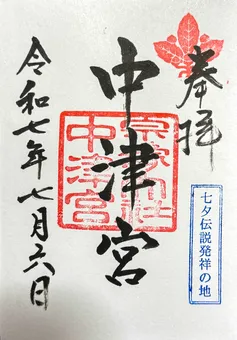 奉拝
中津宮
宗像大社
中津宮
七夕伝説発祥の地
令和七年七月六日